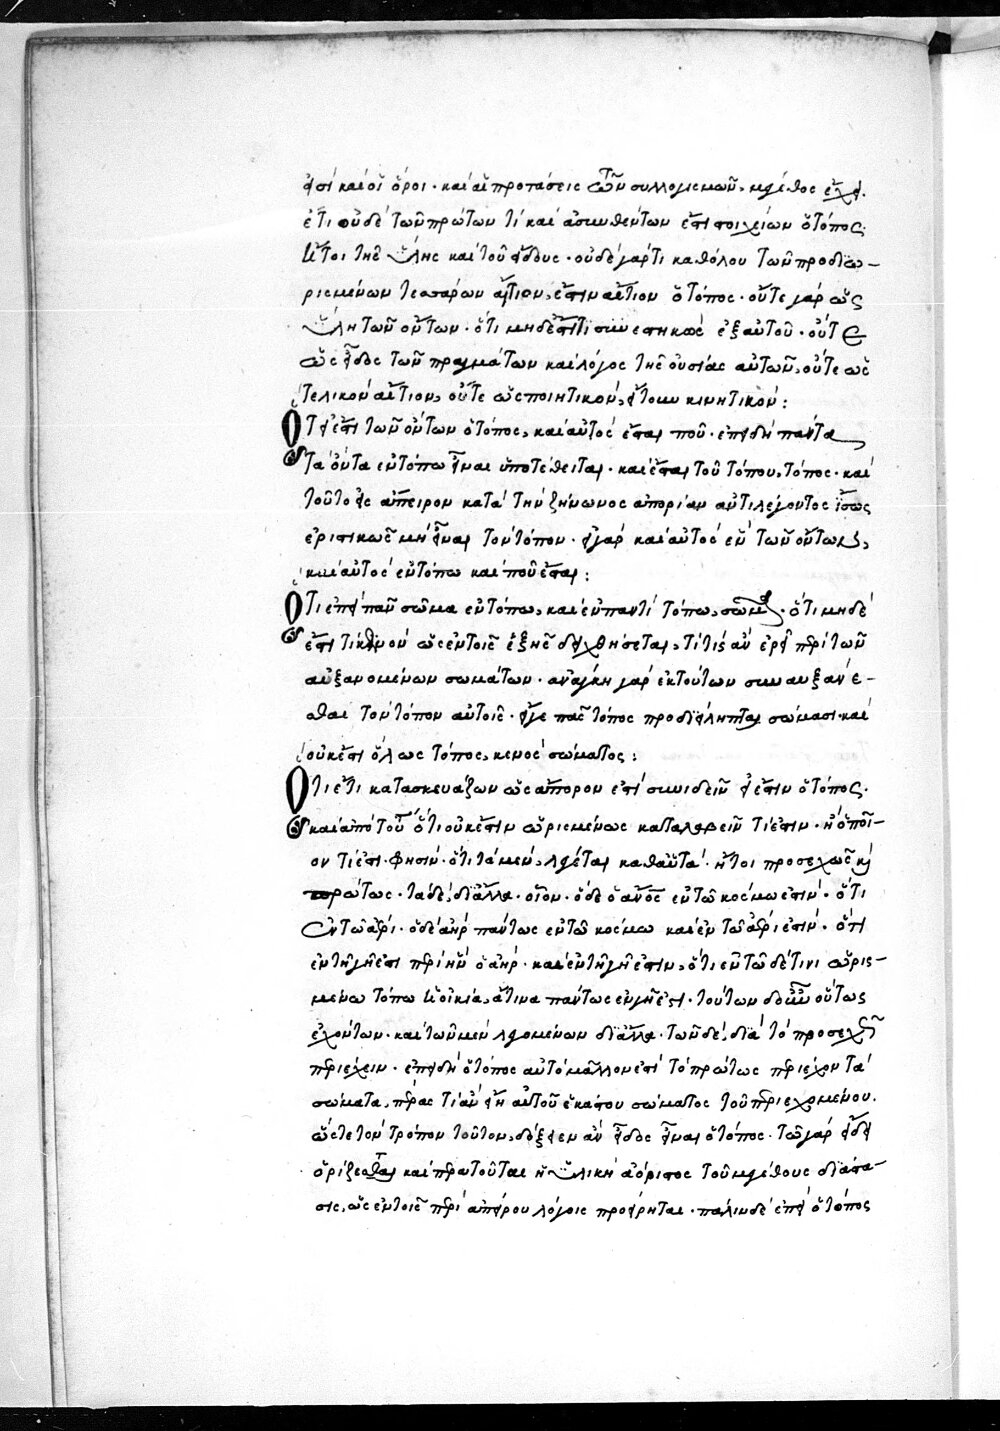 εἰσὶ καὶ οἱ ὅροι· καὶ αἱ προτάσεις τῶν συλλογισμῶν, μέγεθος ἔχει.
ἔτι οὐδὲ τῶν πρώτων τί καὶ ἀσυνθέτων ἐστὶ στοιχείων ὁ τόπος·
ἤτοι τῆς ὕλης καὶ τοῦ εἴδους· οὐδὲ γάρ τι καθόλου τῶν προδιω-
ρισμένων τεσσάρων αἰτίων, ἐστὶν αἴτιον ὁ τόπος· οὔτε γὰρ ὡς
ὕλη τῶν ὄντων· ὅτι μηδέ ἐστί τι συνεστηκὸς ἐξ αὐτοῦ· οὔτε
ὡς εἶδος τῶν πραγμάτων καὶ λόγος τῆς οὐσίας αὐτῶν, οὔτε ὡς
τελικὸν αἴτιον, οὔτε ὡς ποιητικόν, ἤτοι κινητικόν:
Ὅτι εἰ ἔστι τῶν ὄντων ὁ τόπος, καὶ αὐτὸς ἔσται που· ἐπειδὴ πάντα
τὰ ὄντα ἐν τόπω εἶναι ὑποτέθειται· καὶ ἔσται τοῦ τόπου, τόπος· καὶ
τοῦτο εἰς ἄπειρον κατὰ τὴν ζήνωνος ἀπορίαν ἀντιλέγοντος ἴσως
ἐριστικῶς μὴ εἶναι τὸν τόπον· εἰ γὰρ καὶ αὐτὸς ἓν τῶν ὄντων,
καὶ αὐτὸς ἐν τόπω καὶ ποῦ ἔσται:
Ὅτι ἐπεὶ πᾶν σῶμα ἐν τόπω, καὶ ἐν παντὶ τόπω, σῶμα· ὅτι μηδέ
ἐστί τι κενὸν ὡς ἐν τοῖς ἑξῆς δειχθήσεται, τί τις ἂν ἐρεῖ περὶ τῶν
αὐξανομένων σωμάτων· ἀνάγκη γὰρ ἐκ τούτων συναυξάνε-
σθαι τὸν τόπον αὐτοῖς· εἴγε πᾶς τόπος προδιείληπται σώμασι· καὶ
οὐκ ἔστι ὅλως τόπος, κενὸς σώματος:
Ὅτι ἔτι κατασκευάζων ὡς ἄπορον ἐστὶ συνιδεῖν εἰ ἔστιν ὁ τόπος·
καὶ ἀπὸ τοῦ ὅτι οὐκ ἔστιν ὡρισμένως καταλαβεῖν τί ἐστιν· ἢ ὁποῖ-
ον τί ἐστι· φησὶν· ὅτι τὰ μέν, λέγεται καθ' αὑτά· ἤτοι προσεχῶς καὶ
πρώτως· τὰ δέ, δι' ἄλλα· οἷον· ὅδε ὁ ἄνος ἐν τῶ κόσμω ἐστίν· ὅτι
ἐν τῶ ἀέρι· ὁ δὲ ἀὴρ πάντως ἐν τῶ κόσμω καὶ ἐν τῶ ἀέρι ἐστίν· ὅτι
ἐν τῆ γῆ ἐστι περὶ ἣν ὁ ἀήρ· καὶ ἐν τῆ γῆ ἐστιν, ὅτι ἐν τῶδέ τινι ὡρισ-
μένω τόπω ἢ οἰκία, ἅτινα πάντως ἐν γῆ ἐστι· τούτων δὲ οὕτως
ἐχόντων· καὶ τῶν μὲν λεγομένων δι' ἄλλα· τῶν δέ, διὰ τὸ προσεχῶς
περιέχειν· ἐπειδὴ ὁ τόπος αὐτὸ μᾶλλον ἐστὶ τὸ πρώτως περιέχον τὰ
σώματα, πέρας τί ἂν εἴη αὐτοῦ ἑκάστου σώματος τοῦ περιεχομένου.
ὥστε τὸν τρόπον τοῦτον, δόξειεν ἂν εἶδος εἶναι ὁ τόπος· τῶ γὰρ εἴδει
ὁρίζεσθαι καὶ περατοῦται ἡ ὑλικὴ ἀόριστος τοῦ μεγέθους διάστα-
σις, ὡς ἐν τοῖς περὶ ἀπείρου λόγοις προείρηται· πάλιν δὲ ἐπεὶ ὁ τόπος